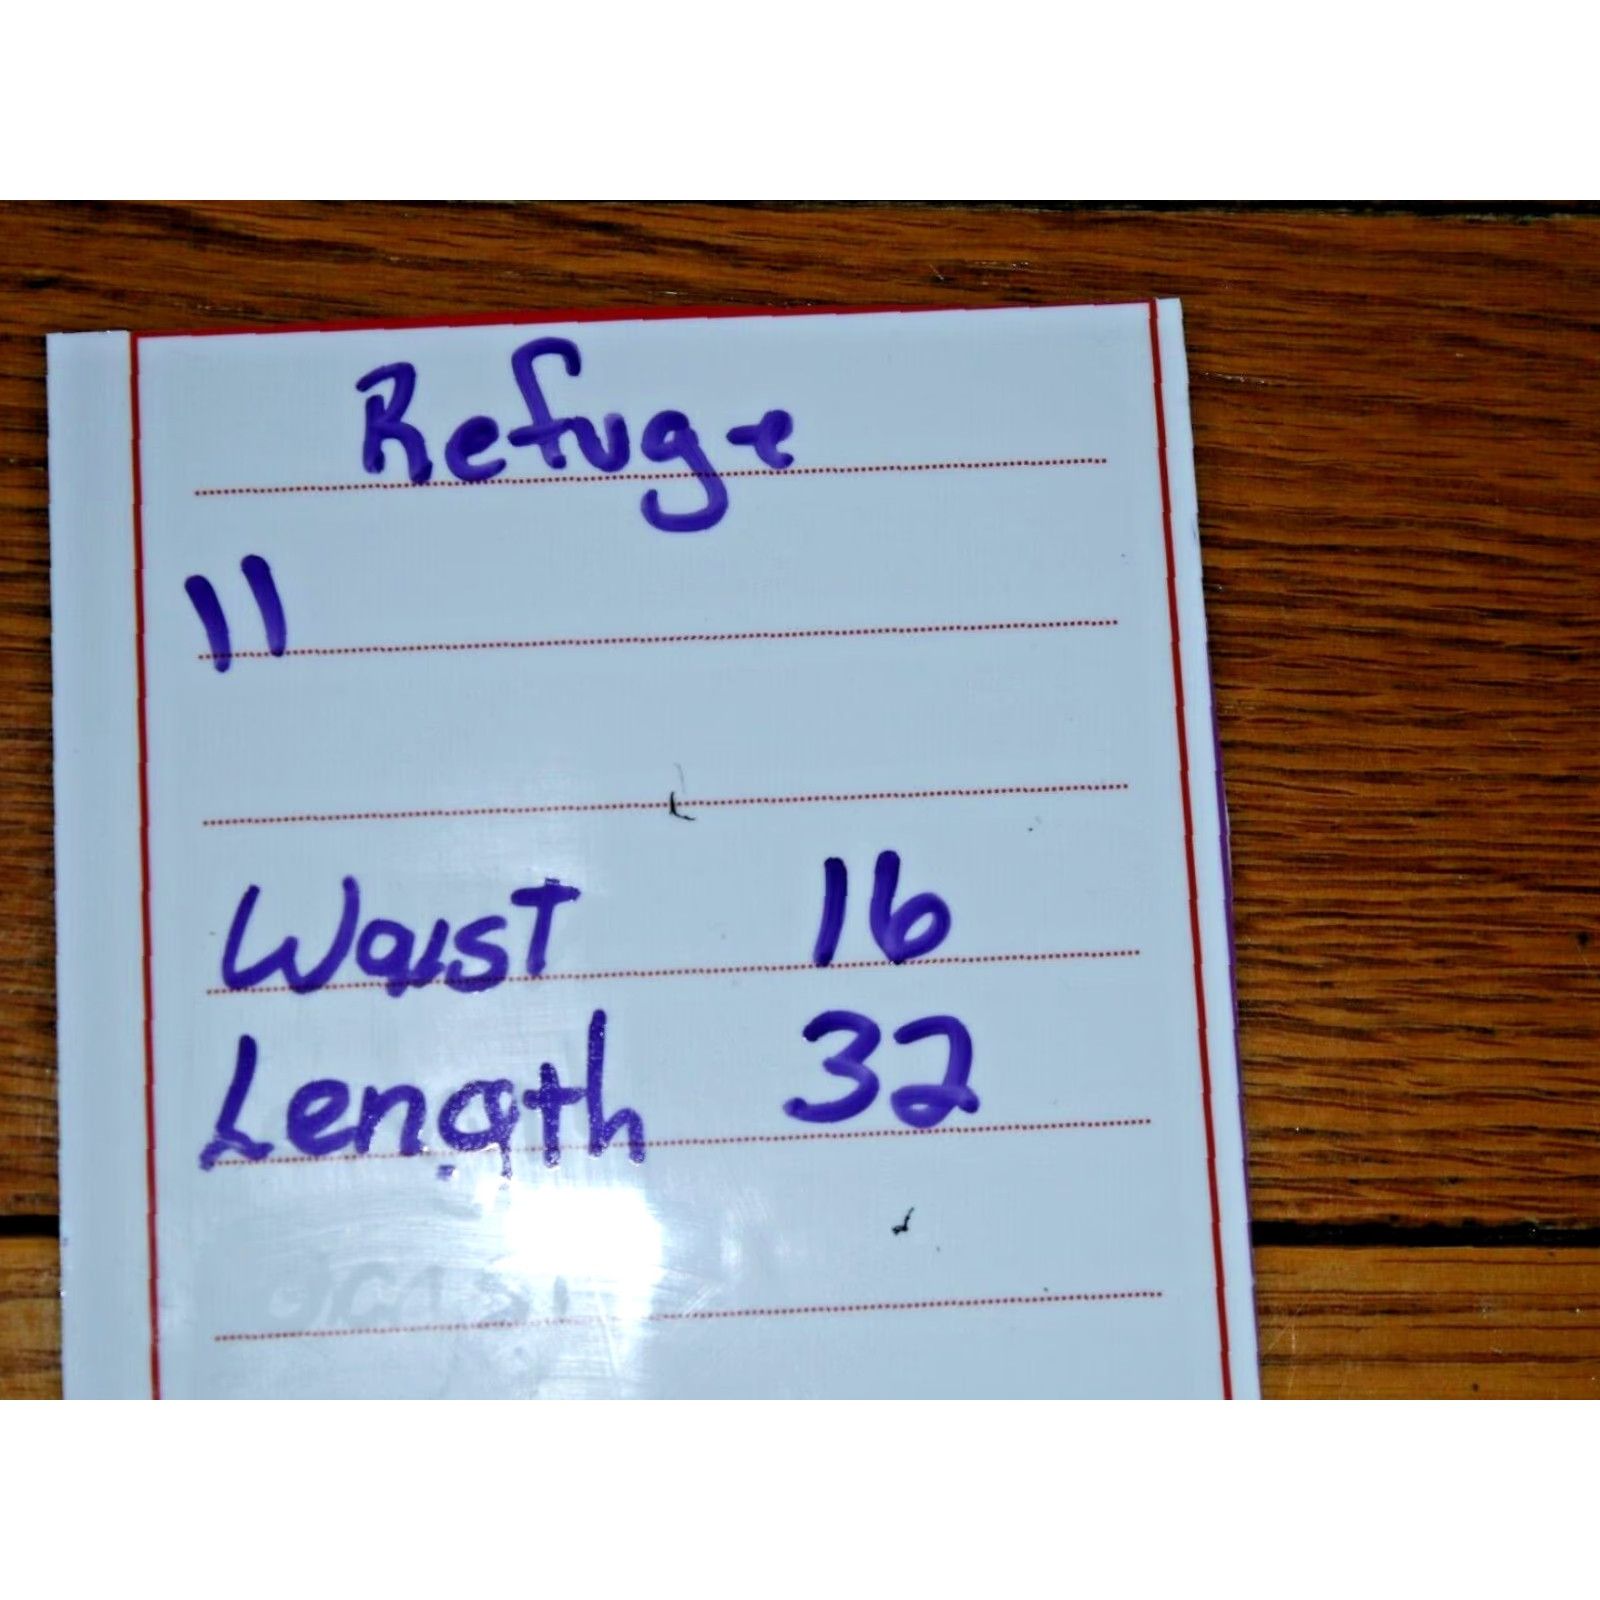 Refuge
11
Waist 16
Length 32